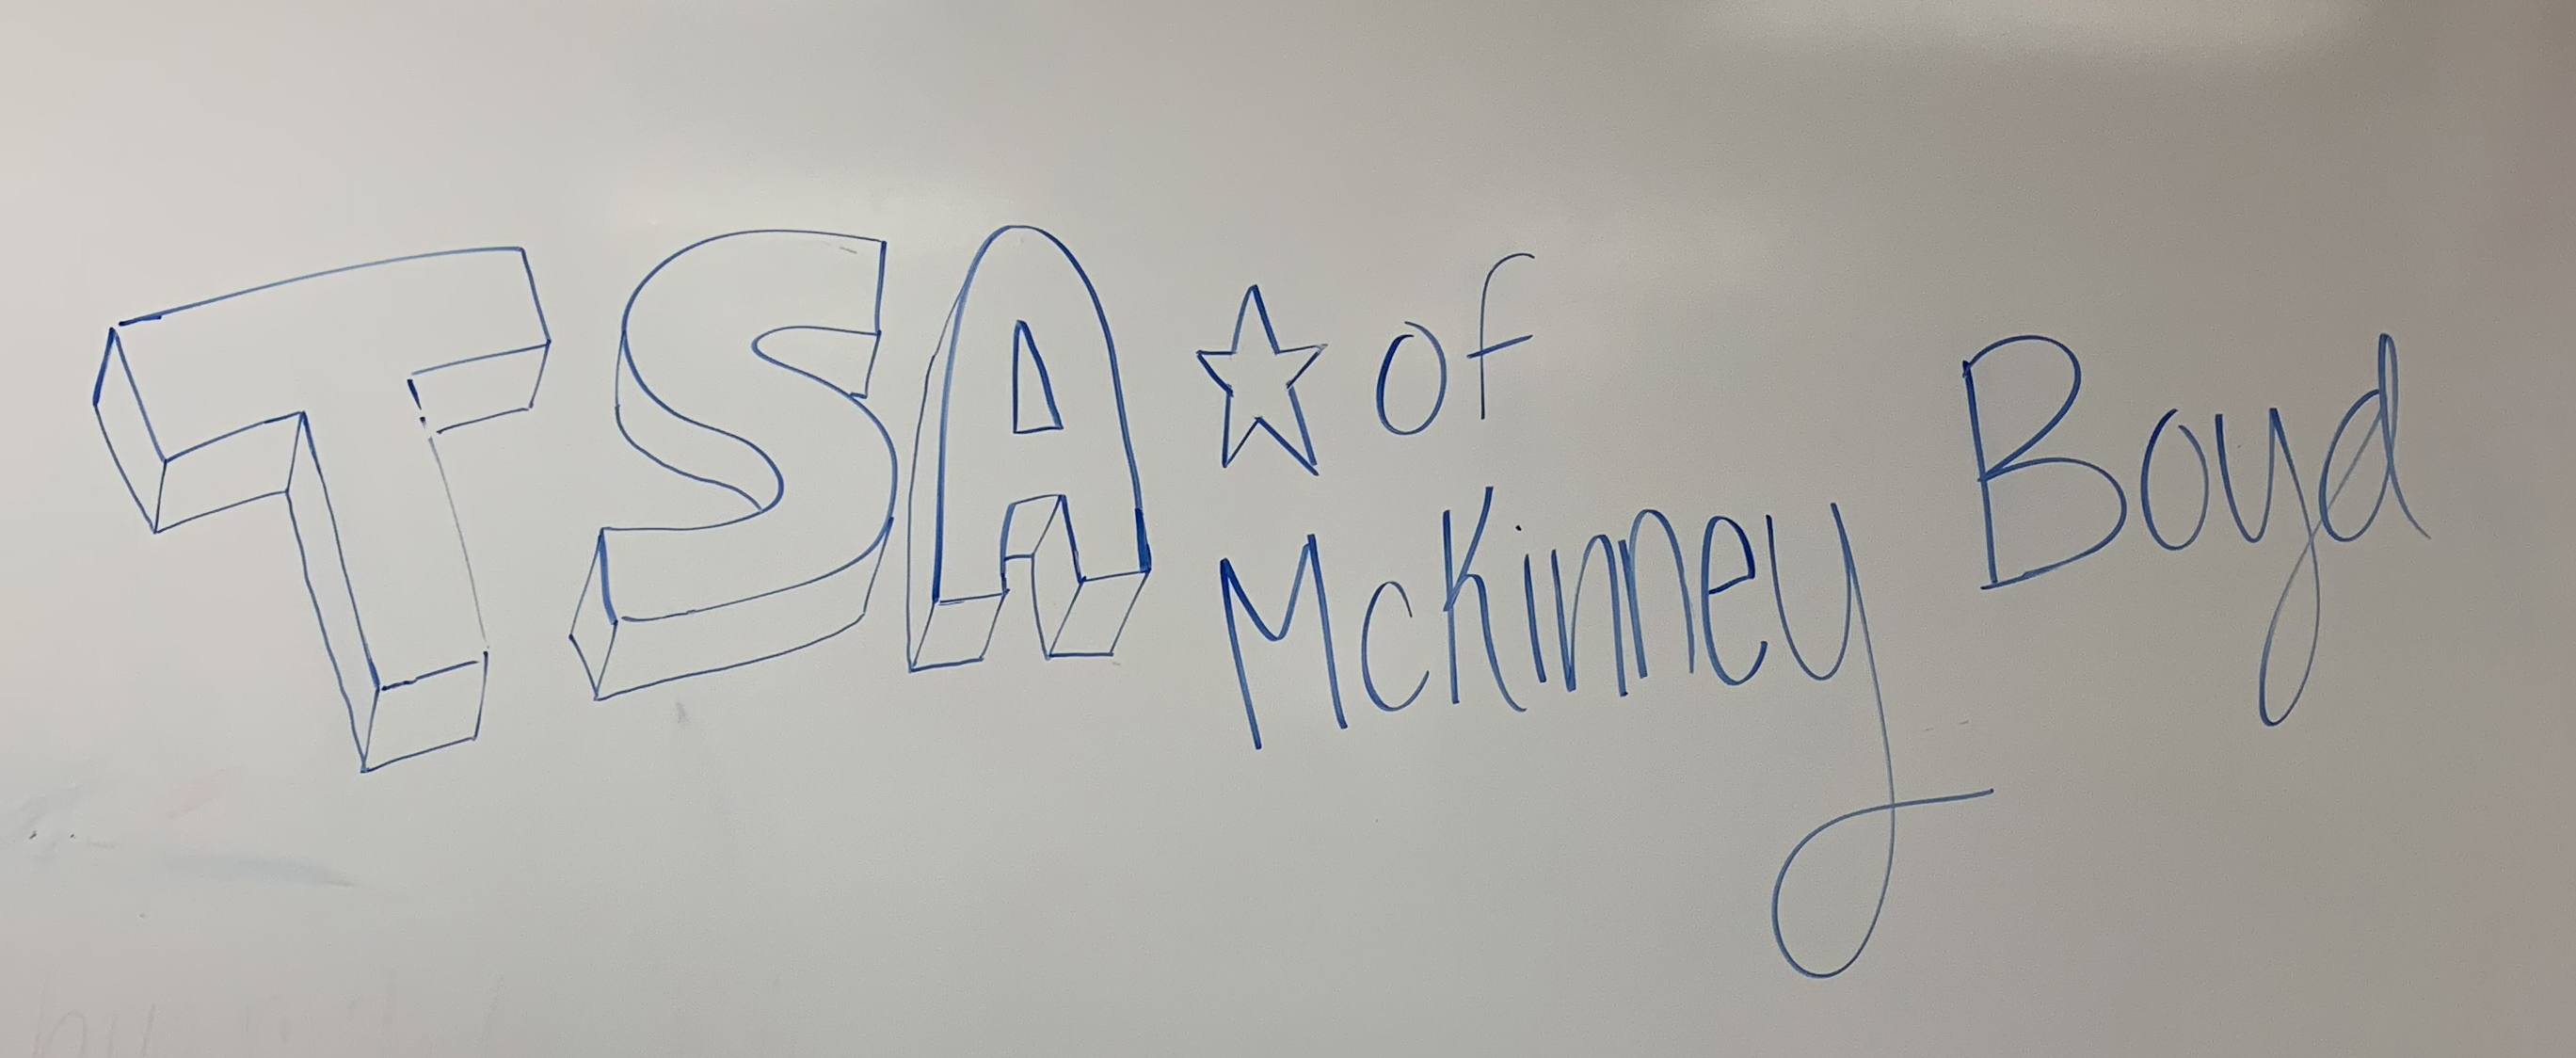 TSA ☆ of
McKinney Boyd